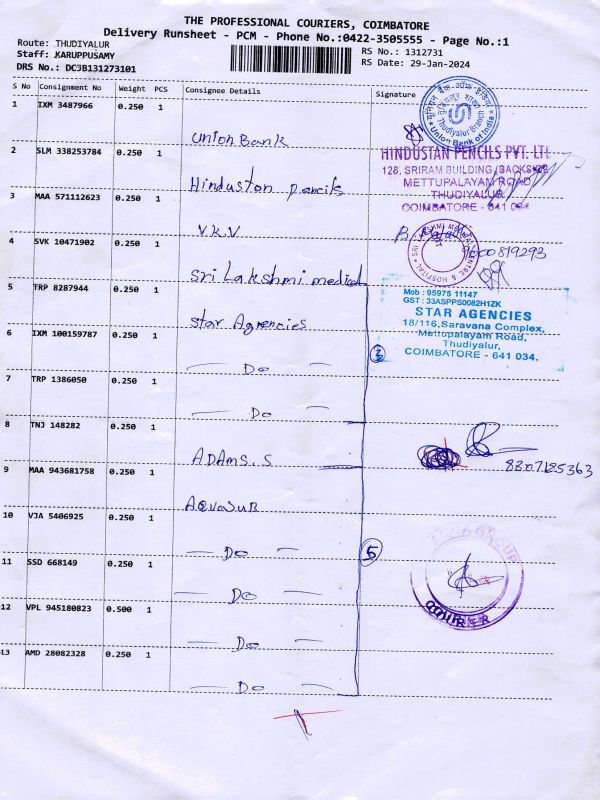 THE PROFESSIONAL COURIERS, COIMBATORE
Delivery Runsheet - PCM - Phone No.:0422-3505555 - Page No.:1
Route: THUDIYALUR
Staff: KARUPPUSAMY
DRS No.: DCJB131273101
RS No.: 1312731
RS Date: 29-Jan-2024
S No Consignment No Weight PCS Consignee Details Signature
1 IXM 3487966 0.250 1 Union Bank
2 SLM 338253784 0.250 1 Hinduston pencils
3 MAA 571112623 0.250 1 V.K.V
4 SVK 10471902 0.250 1 Sri Lakshmi medical
5 TRP 8287944 0.250 1 Star Agencies
6 IXM 100159787 0.250 1 — Do —
7 TRP 1386050 0.250 1 — Do —
8 TNJ 148282 0.250 1 ADAMS. S
9 MAA 943681758 0.250 1 Aqvasub
10 VJA 5406925 0.250 1 — Do —
11 SSD 668149 0.250 1 — Do —
12 VPL 945180823 0.500 1 — Do —
13 AMD 28082328 0.250 1 — Do —
यूनियन बैंक ऑफ इंडिया
Thudiyalur Branch
Union Bank of India
HINDUSTAN PENCILS PVT. LTD
128, SRIRAM BUILDING (BACKSIDE
METTUPALAYAM ROAD
THUDIYALUR
COIMBATORE - 641 034
SRI LAKSHMI MEDICAL CENTRE & HOSPITAL
Mob : 95975 11147
GST : 33ASPPS0082H1ZK
STAR AGENCIES
18/116, Saravana Complex,
Mettupalayam Road,
Thudiyalur,
COIMBATORE - 641 034.
3
8807125363
5
AQUA GROUP
COURIER